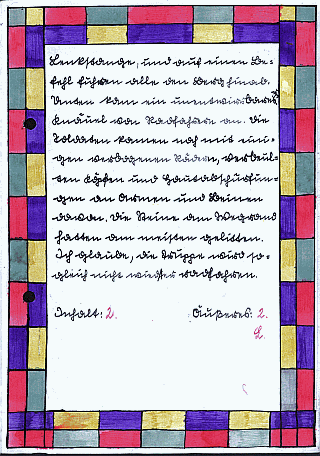 Lenkstange, und auf einen Be-
fehl fuhren alle den Berg hinab.
Unten kam ein unentwirrbares
Knäuel von Radfahrern an. Die
Soldaten kamen noch mit eini-
gen verbogenen Rädern, verbeul-
ten Köpfen und Hautabschürfun-
gen an Armen und Beinen
davon. Die Beine am Wegrand
hatten am meisten gelitten.
Ich glaube, die Truppe wird so-
gleich nicht wieder radfahren.
Inhalt: 2. Äußeres: 2.